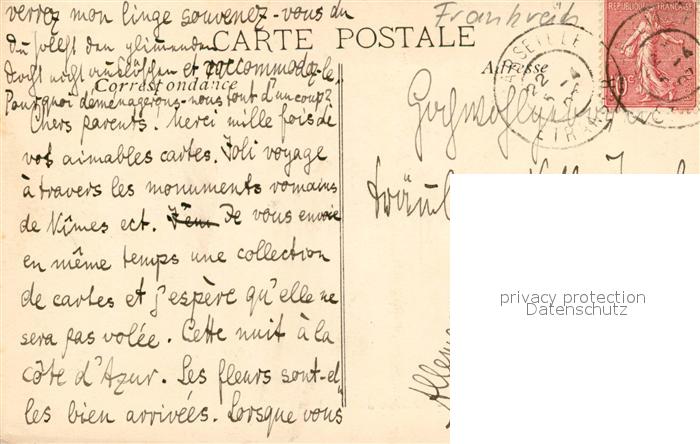 verrez mon linge souvenez-vous du
Du sollst den glimmenden
Docht nicht auslöschen et raccommodez-le!
Pourquoi déménagerons-nous tout d'un coup?
Chers parents. Merci mille fois de
vos aimables cartes. Joli voyage
à travers les monuments romains
de Nîmes ect. Je vous envoie
en même temps une collection
de cartes et j'espère qu'elle ne
sera pas volée. Cette nuit à la
côte d'Azur. Les fleurs sont-el
les bien arrivées. Lorsque vous
CARTE POSTALE
Correspondance
Adresse
Frankreich
REPUBLIQUE FRANÇAISE
10c
MARSEILLE
ETRANGER
Fräul
Allem
privacy protection
Datenschutz